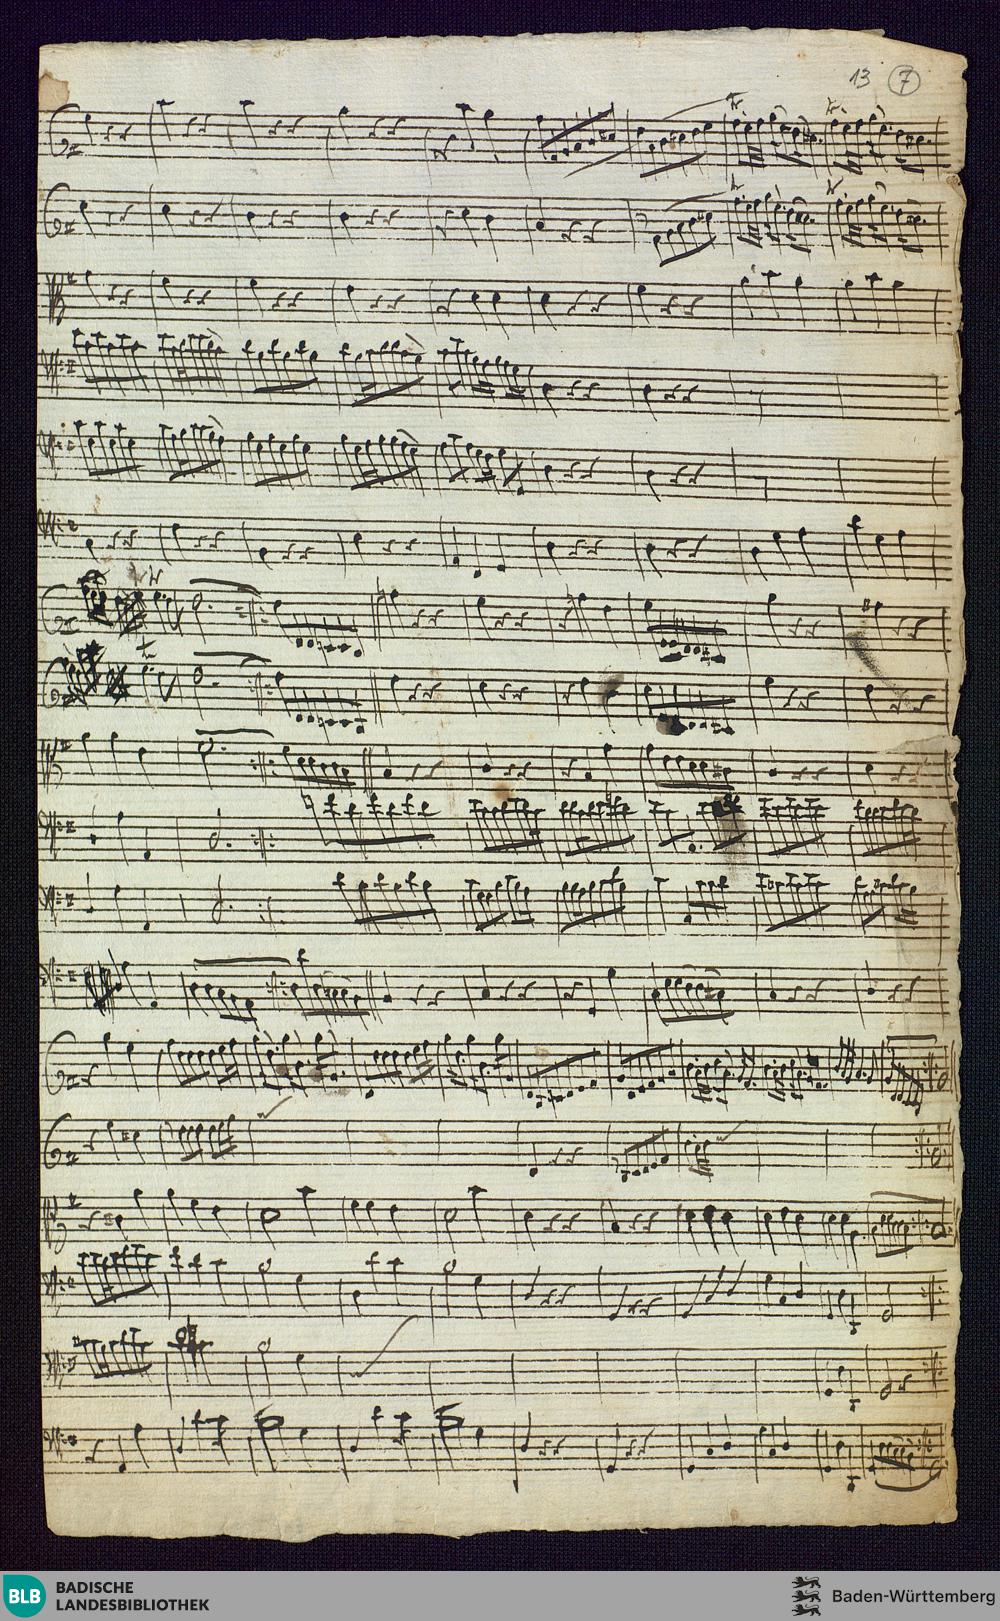 13 7
BLB BADISCHE
LANDESBIBLIOTHEK
Baden-Württemberg